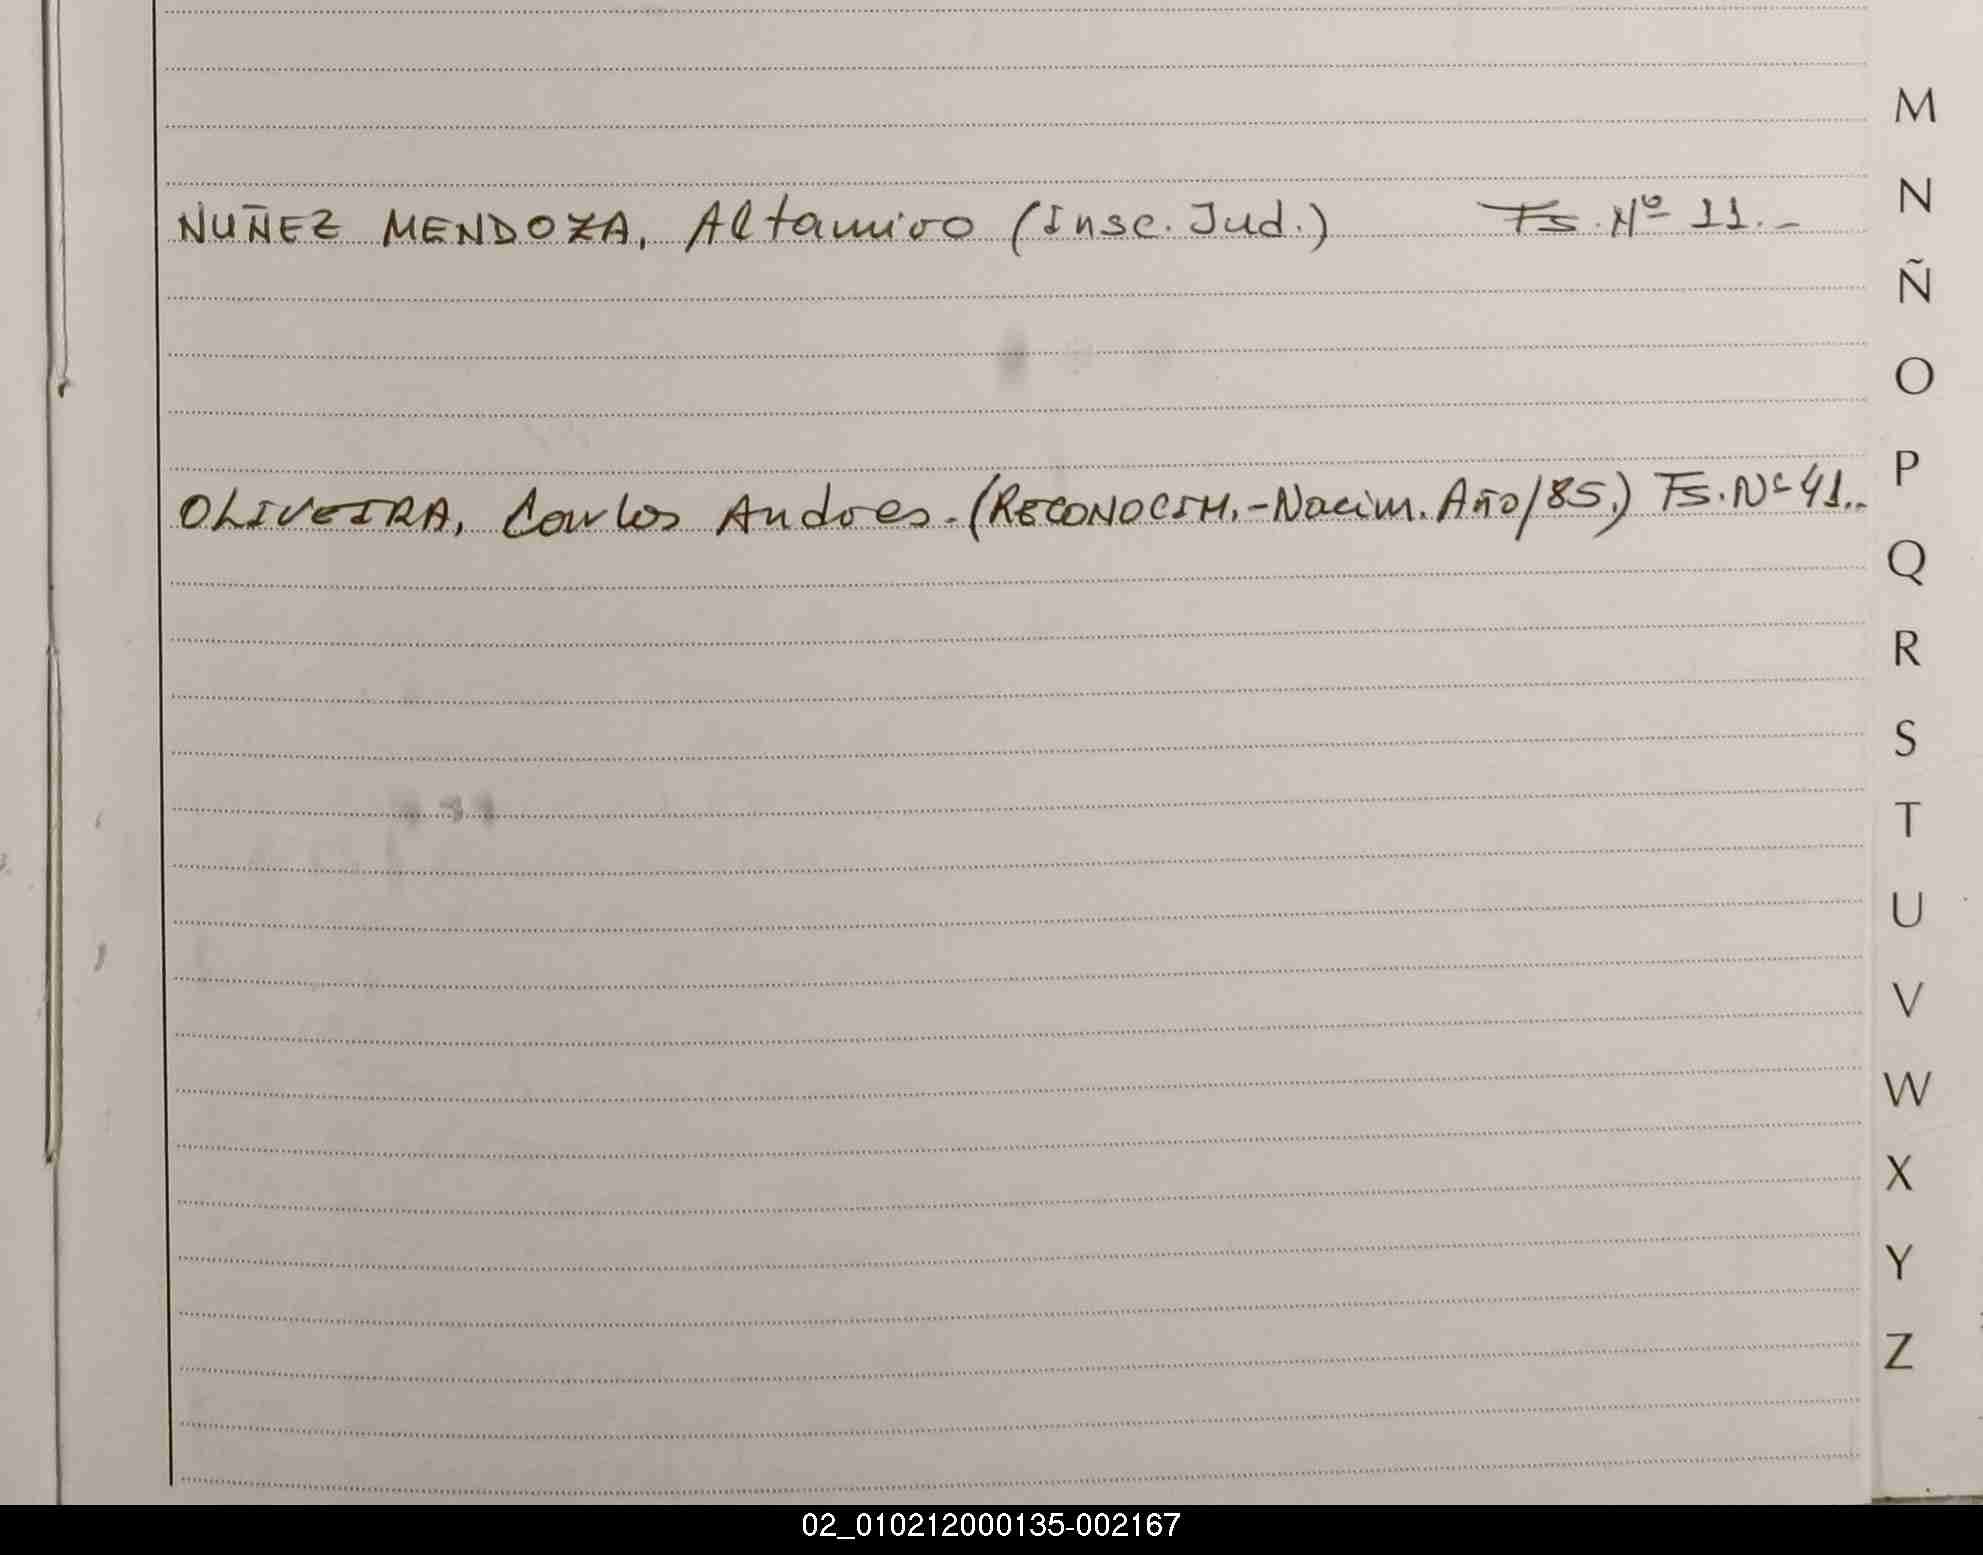 M
N
NUÑEZ MENDOZA, Altamiro (Insc. Jud.) Fs. Nº 11.-
Ñ
O
P
OLIVEIRA, Carlos Andres.(RECONOCIM.-Nacim. Año/85.) Fs. Nº 41..
Q
R
S
T
U
V
W
X
Y
Z
02_010212000135-002167